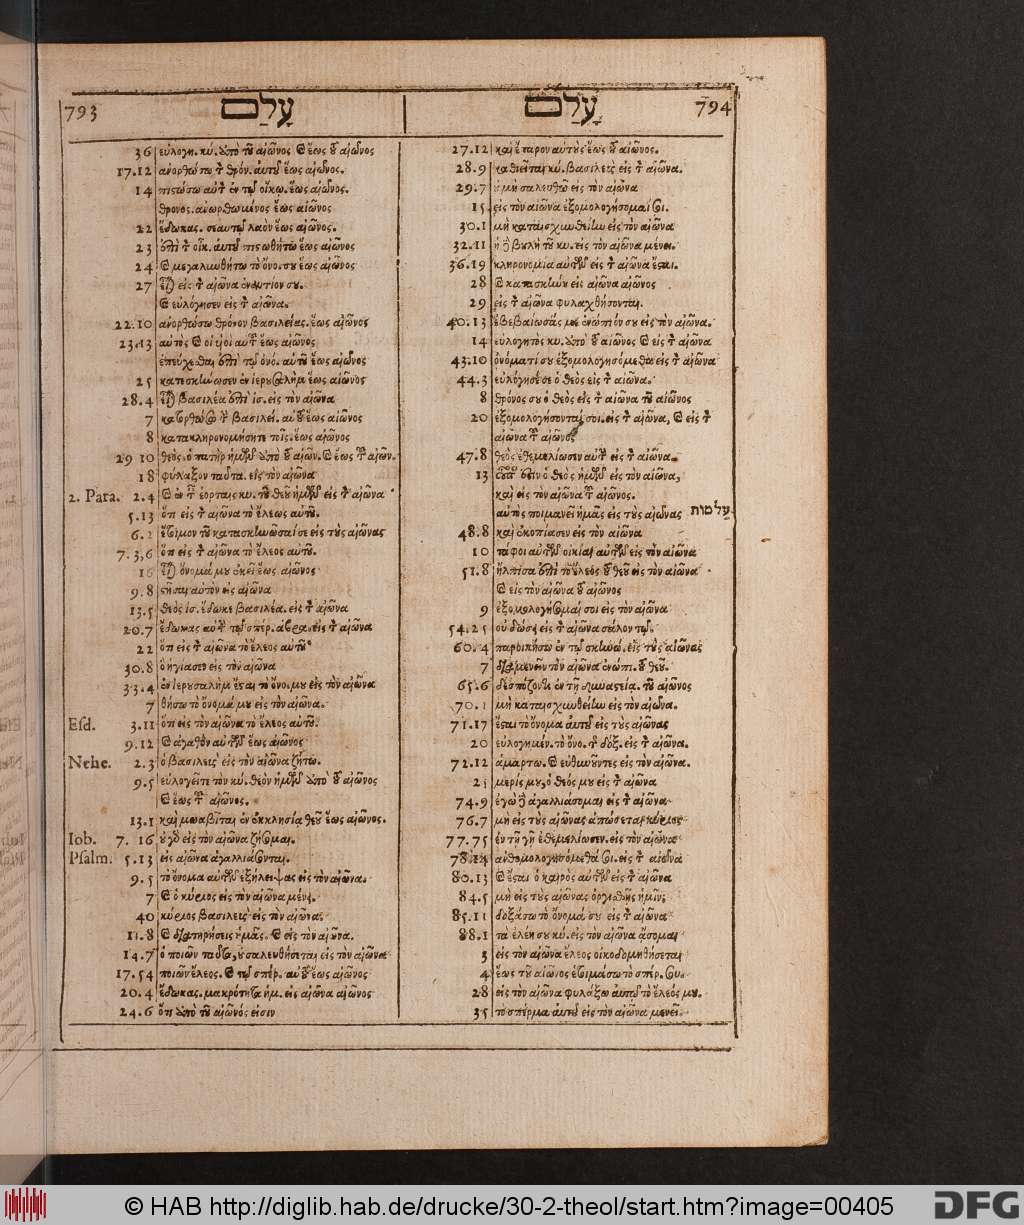 793 עָלַם
36 εὐλογη. κύ. ἀπὸ τοῦ αἰῶνος καὶ ἕως τοῦ αἰῶνος
17.12 ἀνορθώσω τὸν θρόν. αὐτοῦ ἕως αἰῶνος.
14 πιστώσω αὐτὸν ἐν τῷ οἴκῳ. ἕως αἰῶνος.
θρόνος. ἀνωρθωμένος ἕως αἰῶνος
22 ἔδωκας. σεαυτῷ λαὸν ἕως αἰῶνος.
23 ἐπὶ τὸν οἶκ. αὐτοῦ πιστωθήτω ἕως αἰῶνος
24 καὶ μεγαλυνθήτω τὸ ὄνο. σου ἕως αἰῶνος
27 εἶναι εἰς τὸν αἰῶνα ἐναντίον σου.
καὶ εὐλόγησεν εἰς τὸν αἰῶνα.
22.10 ἀνορθώσω θρόνον βασιλείας. ἕως αἰῶνος
23.13 αὐτὸς καὶ οἱ υἱοὶ αὐτοῦ ἕως αἰῶνος
ἐπεύχεσθαι ἐπὶ τῷ ὀνό. αὐτοῦ ἕως αἰῶνος
25 κατεσκήνωσεν ἐν ἱερουσαλὴμ ἕως αἰῶνος
28.4 εἶναι βασιλέα ἐπὶ ἰσ. εἰς τὸν αἰῶνα
7 κατορθώσω τὴν βασιλεί. αὐτοῦ ἕως αἰῶνος
8 κατακληρονομήσητε τοῖς. ἕως αἰῶνος
29 10 θεὸς. ὁ πατὴρ ἡμῶν ἀπὸ τοῦ αἰῶν. καὶ ἕως τοῦ αἰῶν.
18 φύλαξον ταῦτα. εἰς τὸν αἰῶνα
2. Para. 2.4 καὶ ἐν ταῖς ἑορταῖς κυ. τοῦ θεοῦ ἡμῶν εἰς τὸν αἰῶνα
5.13 ὅτι εἰς τὸν αἰῶνα τὸ ἔλεος αὐτοῦ.
6.2 ἕτοιμον τοῦ κατασκηνῶσαί σε εἰς τοὺς αἰῶνας
7.3,6 ὅτι εἰς τὸν αἰῶνα τὸ ἔλεος αὐτοῦ.
16 εἶναι ὄνομά μου ἐκεῖ ἕως αἰῶνος
9.8 στῆσαι αὐτὸν εἰς αἰῶνα
13.5 θεὸς ἰσ. ἔδωκε βασιλέα. εἰς τὸν αἰῶνα
20.7 ἔδωκας αὐτὴν τῷ σπέρ. ἀβρα. εἰς τὸν αἰῶνα
22 ὅτι εἰς τὸν αἰῶνα τὸ ἔλεος αὐτοῦ
30.8 ὃ ἡγίασεν εἰς τὸν αἰῶνα
33.4 ἐν ἱερουσαλὴμ ἔσται τὸ ὄνο. μου εἰς τὸν αἰῶνα
7 θήσω τὸ ὄνομά μου εἰς τὸν αἰῶνα.
Esd. 3.11 ὅτι εἰς τὸν αἰῶνα τὸ ἔλεος αὐτοῦ.
9.12 καὶ ἀγαθὸν αὐτῶν ἕως αἰῶνος
Nehe. 2.3 ὁ βασιλεὺς εἰς τὸν αἰῶνα ζήτω.
9.5 εὐλογεῖτε τὸν κύ. θεὸν ἡμῶν ἀπὸ τοῦ αἰῶνος
καὶ ἕως τοῦ αἰῶνος.
13.1 καὶ μωαβῖται ἐν ἐκκλησίᾳ θεοῦ ἕως αἰῶνος.
Iob. 7. 16 οὐ γὰρ εἰς τὸν αἰῶνα ζήσομαι.
Psalm. 5.13 εἰς αἰῶνα ἀγαλλιάσονται.
9.5 τὸ ὄνομα αὐτῶν ἐξήλειψας εἰς τὸν αἰῶνα.
7 καὶ ὁ κύριος εἰς τὸν αἰῶνα μένει.
40 κύριος βασιλεὺς εἰς τὸν αἰῶνα.
11.8 καὶ διατηρήσεις ἡμᾶς. καὶ εἰς τὸν αἰῶνα.
14.7 ὁ ποιῶν ταῦτα, οὐ σαλευθήσεται εἰς τὸν αἰῶνα
17.54 ποιῶν ἔλεος. καὶ τῷ σπέρ. αὐτοῦ ἕως αἰῶνος
20.4 ἔδωκας. μακρότητα ἡμ. εἰς αἰῶνα αἰῶνος
24.6 ὅτι ἀπὸ τοῦ αἰῶνός εἰσιν
עָלַם 794
27.12 καὶ ἔπαρον αὐτοὺς ἕως τοῦ αἰῶνος.
28.9 καθιεῖται κύ. βασιλεὺς εἰς τὸν αἰῶνα.
29.7 οὐ μὴ σαλευθῶ εἰς τὸν αἰῶνα
15 εἰς τὸν αἰῶνα ἐξομολογήσομαί σοι.
30.1 μὴ καταισχυνθείην εἰς τὸν αἰῶνα
32.11 ἡ δὲ βουλὴ τοῦ κυ. εἰς τὸν αἰῶνα μένει.
36.19 κληρονομία αὐτῶν εἰς τὸν αἰῶνα ἔσται.
28 καὶ κατασκήνου εἰς αἰῶνα αἰῶνος
29 εἰς τὸν αἰῶνα φυλαχθήσονται.
40.13 ἐβεβαίωσάς με ἐνώπιόν σου εἰς τὸν αἰῶνα.
14 εὐλογητὸς κυ. ἀπὸ τοῦ αἰῶνος καὶ εἰς τὸν αἰῶνα
43.10 ὀνόματί σου ἐξομολογησόμεθα εἰς τὸν αἰῶνα
44.3 εὐλόγησέ σε ὁ θεὸς εἰς τὸν αἰῶνα.
8 θρόνος σου ὁ θεὸς εἰς τὸν αἰῶνα τοῦ αἰῶνος
20 ἐξομολογήσονταί σοι. εἰς τὸν αἰῶνα, καὶ εἰς τὸν
αἰῶνα τοῦ αἰῶνος
47.8 θεὸς ἐθεμελίωσεν αὐτὴν εἰς τὸν αἰῶνα.
13 οὗτός ἐστιν ὁ θεὸς ἡμῶν εἰς τὸν αἰῶνα,
καὶ εἰς τὸν αἰῶνα τοῦ αἰῶνος.
αὐτὸς ποιμανεῖ ἡμᾶς εἰς τοὺς αἰῶνας עַלְמוּת
48.8 καὶ ἐκοπίασεν εἰς τὸν αἰῶνα
10 τάφοι αὐτῶν οἰκίαι αὐτῶν εἰς τὸν αἰῶνα
51.8 ἤλπισα ἐπὶ τὸ ἔλεος τοῦ θεοῦ εἰς τὸν αἰῶνα
καὶ εἰς τὸν αἰῶνα τοῦ αἰῶνος
9 ἐξομολογήσομαί σοι εἰς τὸν αἰῶνα
54.25 οὐ δώσει εἰς τὸν αἰῶνα σάλον τῷ.
60.4 παροικήσω ἐν τῷ σκηνώ. εἰς τοὺς αἰῶνας
7 διαμενεῖ εἰς τὸν αἰῶνα ἐνώπι. τοῦ θεοῦ.
65.6 δεσπόζοντι ἐν τῇ δυναστείᾳ. τοῦ αἰῶνος
70.1 μὴ καταισχυνθείην εἰς τὸν αἰῶνα.
71.17 ἔσται τὸ ὄνομα αὐτοῦ εἰς τοὺς αἰῶνας
20 εὐλογημέν. τὸ ὄνο. τῆς δόξ. εἰς τὸν αἰῶνα.
72.12 ἁμαρτω. καὶ εὐθηνοῦντες εἰς τὸν αἰῶνα.
25 μερίς μου, ὁ θεός μου εἰς τὸν αἰῶνα
74.9 ἐγὼ δὲ ἀγαλλιάσομαι εἰς τὸν αἰῶνα
76.7 μὴ εἰς τοὺς αἰῶνας ἀπώσεται κύριος
77.75 ἐν τῇ γῇ ἐθεμελίωσεν. εἰς τὸν αἰῶνα
78.14 ἀνθομολογησόμεθά σοι. εἰς τὸν αἰῶνα
80.13 καὶ ἔσται ὁ καιρὸς αὐτῶν εἰς τὸν αἰῶνα
84.5 μὴ εἰς τοὺς αἰῶνας ὀργισθῇς ἡμῖν;
85.11 δοξάσω τὸ ὄνομά σου εἰς τὸν αἰῶνα
88.1 τὰ ἐλέη σου κύ. εἰς τὸν αἰῶνα ᾄσομαι
3 εἰς τὸν αἰῶνα ἔλεος οἰκοδομηθήσεται
4 ἕως τοῦ αἰῶνος ἑτοιμάσω τὸ σπέρ. σου.
28 εἰς τὸν αἰῶνα φυλάξω αὐτῷ τὸ ἔλεός μου.
35 τὸ σπέρμα αὐτοῦ εἰς τὸν αἰῶνα μενεῖ.
© HAB http://diglib.hab.de/drucke/30-2-theol/start.htm?image=00405 DFG